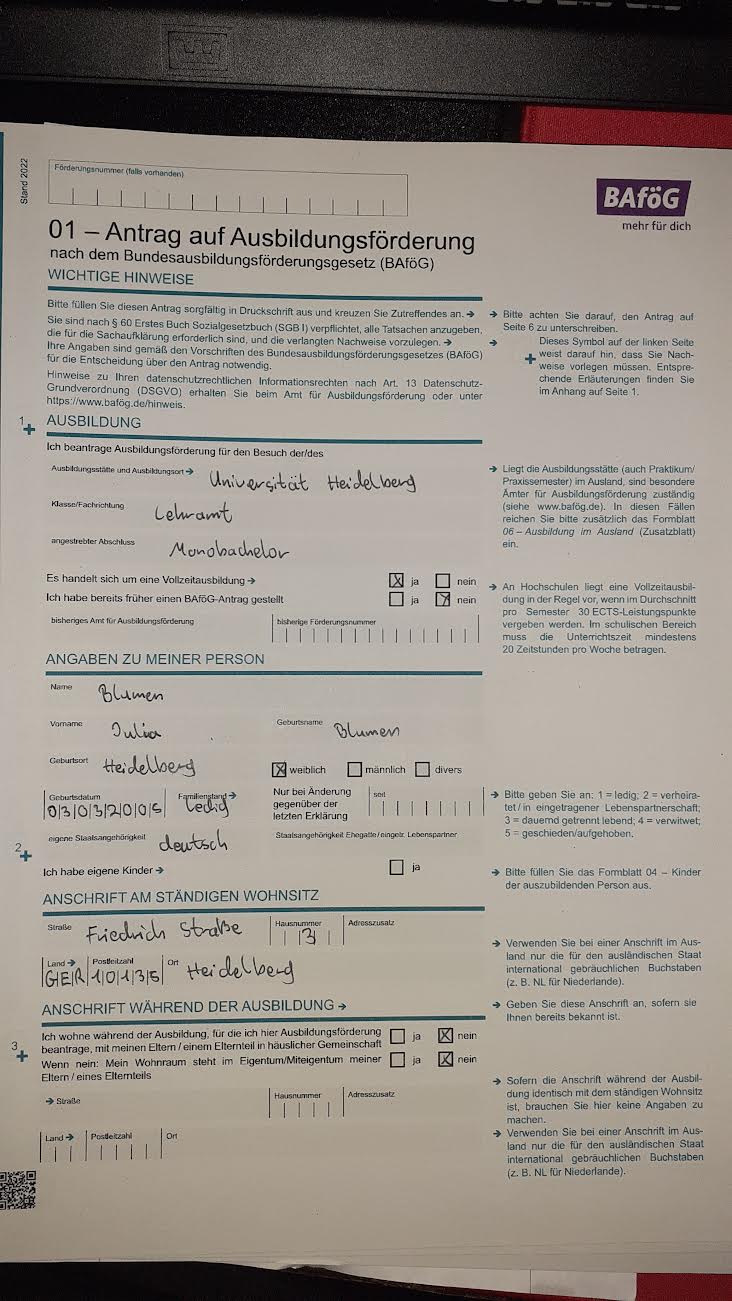 Stand 2022
Förderungsnummer (falls vorhanden)
BAföG
mehr für dich
01 – Antrag auf Ausbildungsförderung
nach dem Bundesausbildungsförderungsgesetz (BAföG)
WICHTIGE HINWEISE
Bitte füllen Sie diesen Antrag sorgfältig in Druckschrift aus und kreuzen Sie Zutreffendes an. →
Sie sind nach § 60 Erstes Buch Sozialgesetzbuch (SGB I) verpflichtet, alle Tatsachen anzugeben,
die für die Sachaufklärung erforderlich sind, und die verlangten Nachweise vorzulegen. →
Ihre Angaben sind gemäß den Vorschriften des Bundesausbildungsförderungsgesetzes (BAföG)
für die Entscheidung über den Antrag notwendig.
Hinweise zu Ihren datenschutzrechtlichen Informationsrechten nach Art. 13 Datenschutz-
Grundverordnung (DSGVO) erhalten Sie beim Amt für Ausbildungsförderung oder unter
https://www.bafög.de/hinweis.
→ Bitte achten Sie darauf, den Antrag auf
Seite 6 zu unterschreiben.
→ Dieses Symbol auf der linken Seite
+ weist darauf hin, dass Sie Nach-
weise vorlegen müssen. Entspre-
chende Erläuterungen finden Sie
im Anhang auf Seite 1.
1 +
AUSBILDUNG
Ich beantrage Ausbildungsförderung für den Besuch der/des
Ausbildungsstätte und Ausbildungsort → Universität Heidelberg
Klasse/Fachrichtung Lehramt
angestrebter Abschluss Monobachelor
→ Liegt die Ausbildungsstätte (auch Praktikum/
Praxissemester) im Ausland, sind besondere
Ämter für Ausbildungsförderung zuständig
(siehe www.bafög.de). In diesen Fällen
reichen Sie bitte zusätzlich das Formblatt
06 – Ausbildung im Ausland (Zusatzblatt)
ein.
Es handelt sich um eine Vollzeitausbildung → X ja nein
Ich habe bereits früher einen BAföG-Antrag gestellt ja X nein
bisheriges Amt für Ausbildungsförderung bisherige Förderungsnummer
→ An Hochschulen liegt eine Vollzeitausbil-
dung in der Regel vor, wenn im Durchschnitt
pro Semester 30 ECTS-Leistungspunkte
vergeben werden. Im schulischen Bereich
muss die Unterrichtszeit mindestens
20 Zeitstunden pro Woche betragen.
ANGABEN ZU MEINER PERSON
Name Blumen
Vorname Julia Geburtsname Blumen
Geburtsort Heidelberg X weiblich männlich divers
Geburtsdatum 03032005 Familienstand → ledig
Nur bei Änderung
gegenüber der
letzten Erklärung
seit
→ Bitte geben Sie an: 1 = ledig; 2 = verheira-
tet / in eingetragener Lebenspartnerschaft;
3 = dauernd getrennt lebend; 4 = verwitwet;
5 = geschieden/aufgehoben.
eigene Staatsangehörigkeit deutsch Staatsangehörigkeit Ehegatte/eingetr. Lebenspartner
2 +
Ich habe eigene Kinder → ja
→ Bitte füllen Sie das Formblatt 04 – Kinder
der auszubildenden Person aus.
ANSCHRIFT AM STÄNDIGEN WOHNSITZ
Straße Friedrich Straße Hausnummer 3 Adresszusatz
Land → GER Postleitzahl 10135 Ort Heidelberg
→ Verwenden Sie bei einer Anschrift im Aus-
land nur die für den ausländischen Staat
international gebräuchlichen Buchstaben
(z. B. NL für Niederlande).
ANSCHRIFT WÄHREND DER AUSBILDUNG →
→ Geben Sie diese Anschrift an, sofern sie
Ihnen bereits bekannt ist.
3 +
Ich wohne während der Ausbildung, für die ich hier Ausbildungsförderung
beantrage, mit meinen Eltern / einem Elternteil in häuslicher Gemeinschaft ja X nein
Wenn nein: Mein Wohnraum steht im Eigentum/Miteigentum meiner ja X nein
Eltern / eines Elternteils
→ Straße Hausnummer Adresszusatz
Land → Postleitzahl Ort
→ Sofern die Anschrift während der Ausbil-
dung identisch mit dem ständigen Wohnsitz
ist, brauchen Sie hier keine Angaben zu
machen.
→ Verwenden Sie bei einer Anschrift im Aus-
land nur die für den ausländischen Staat
international gebräuchlichen Buchstaben
(z. B. NL für Niederlande).